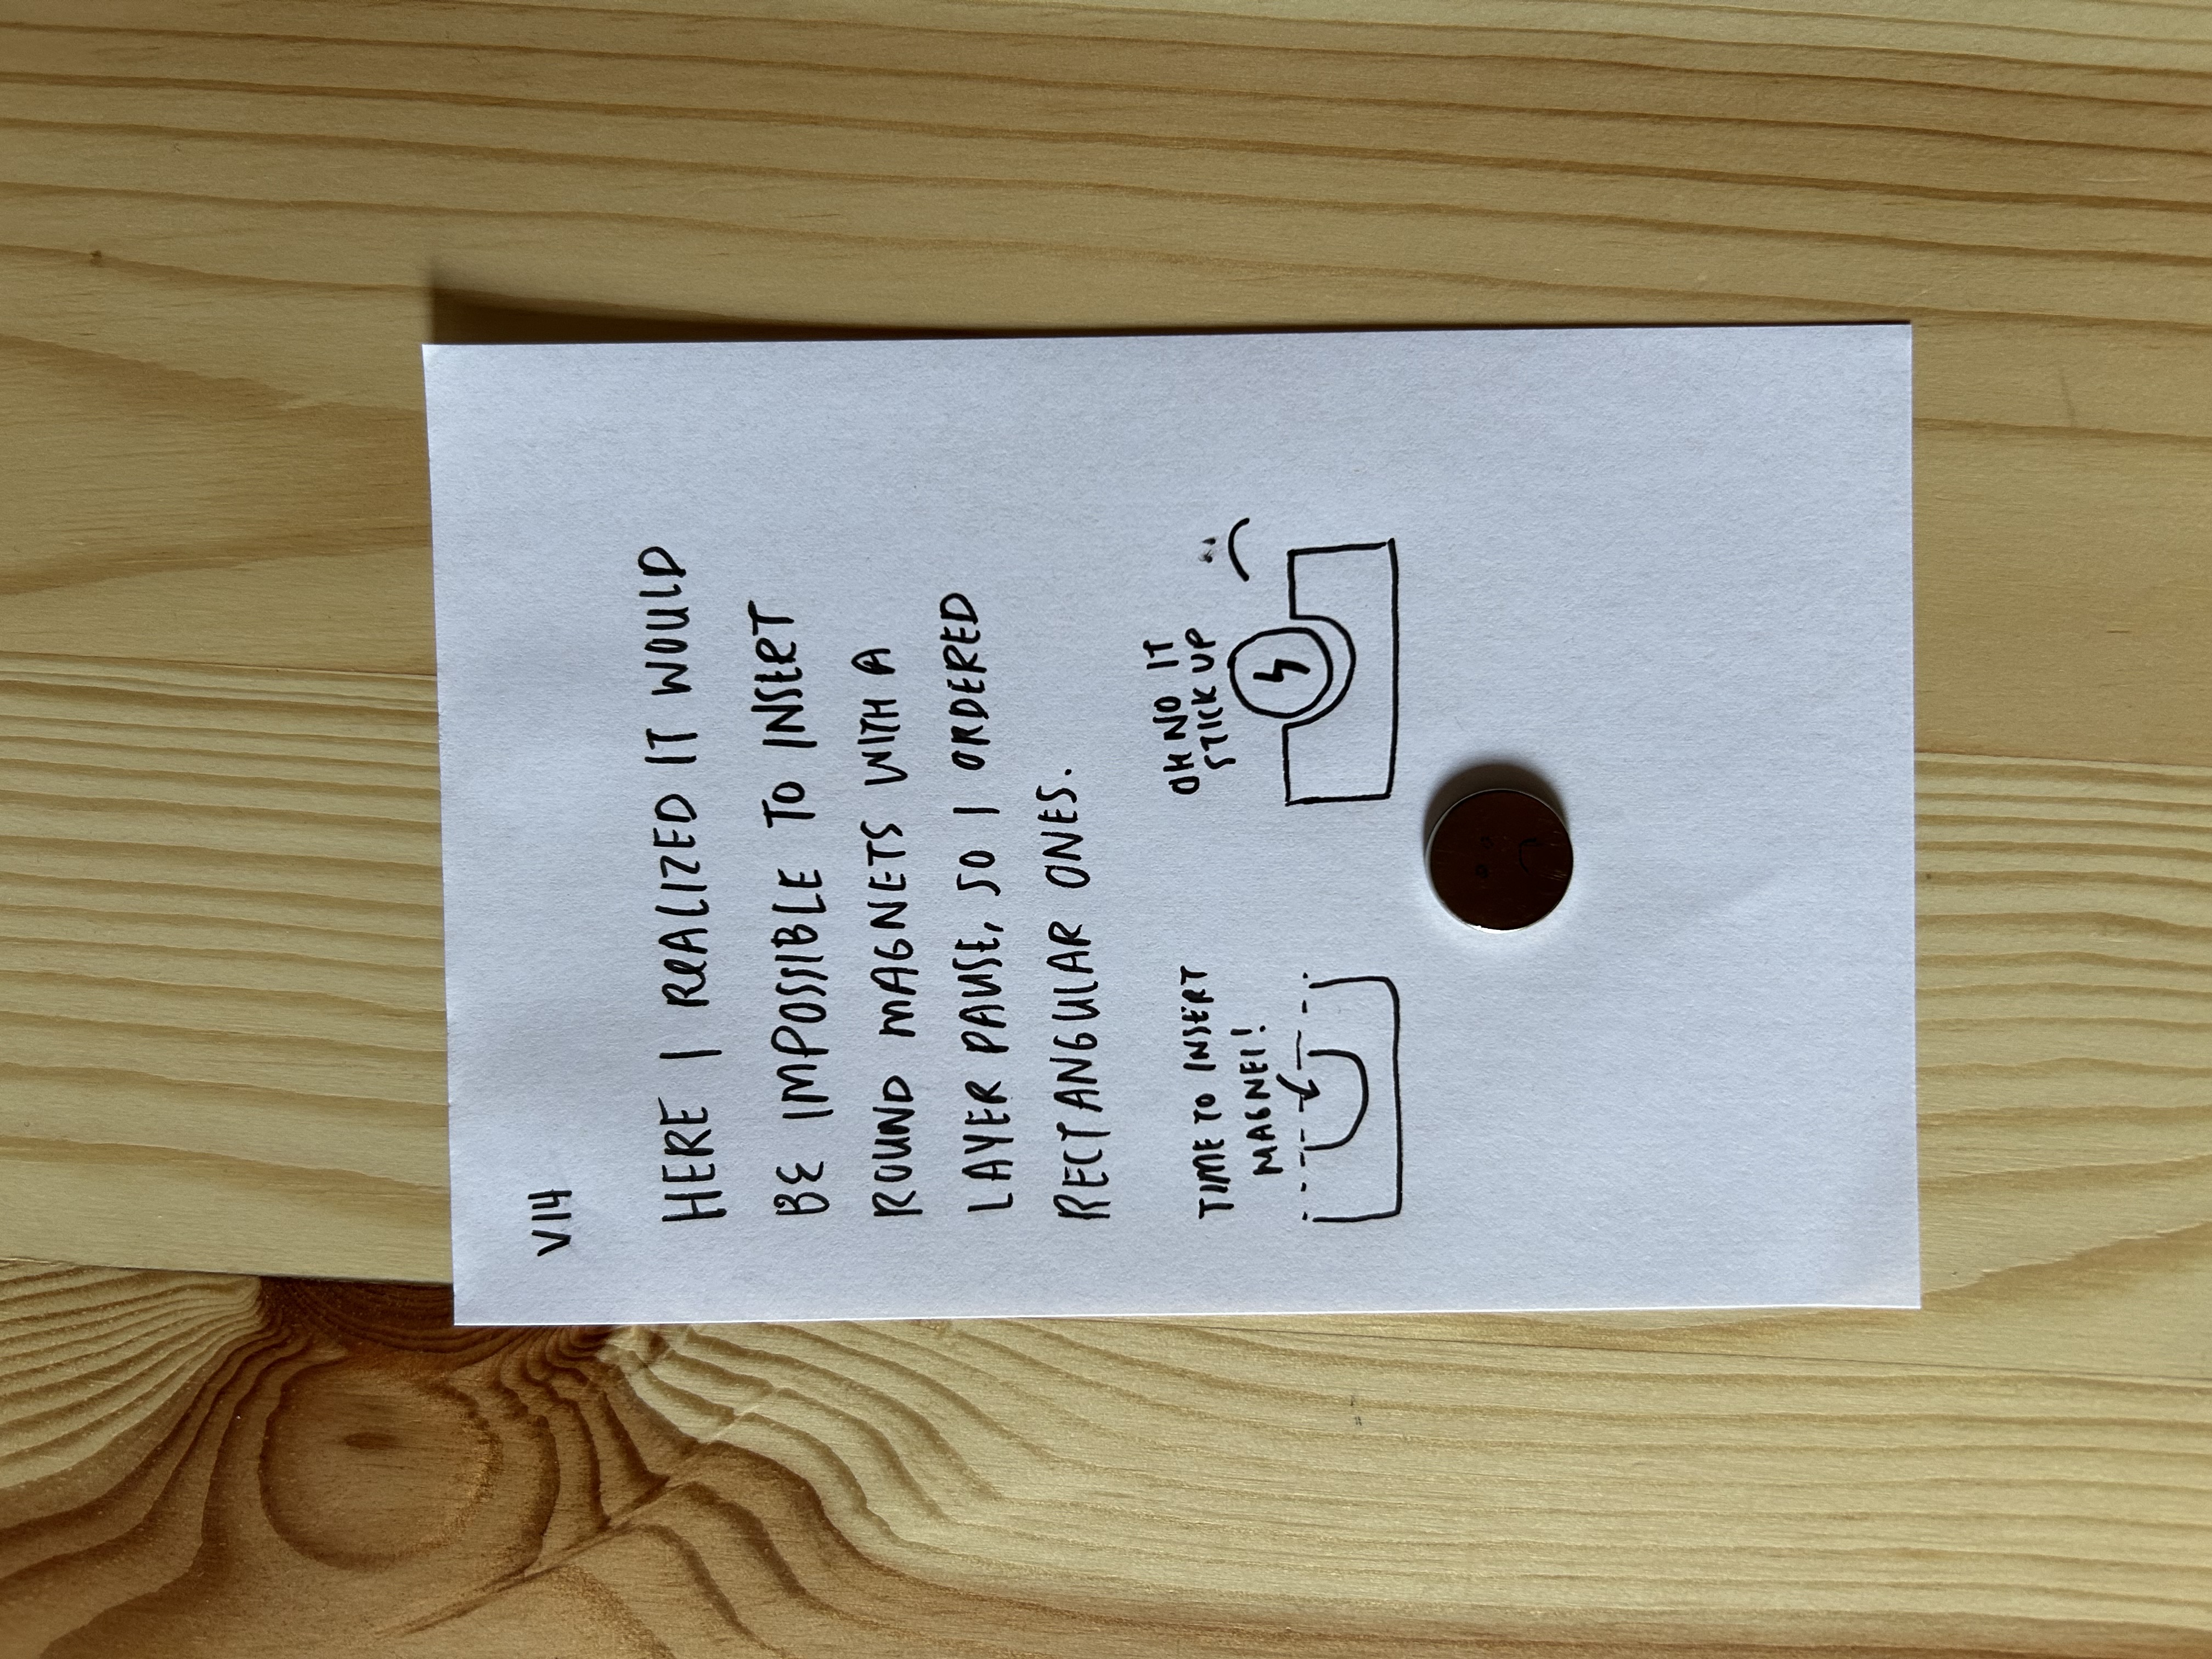 V14
HERE I REALIZED IT WOULD
BE IMPOSSIBLE TO INSERT
ROUND MAGNETS WITH A
LAYER PAUSE, SO I ORDERED
RECTANGULAR ONES.
TIME TO INSERT
MAGNET!
OH NO IT
STICK UP